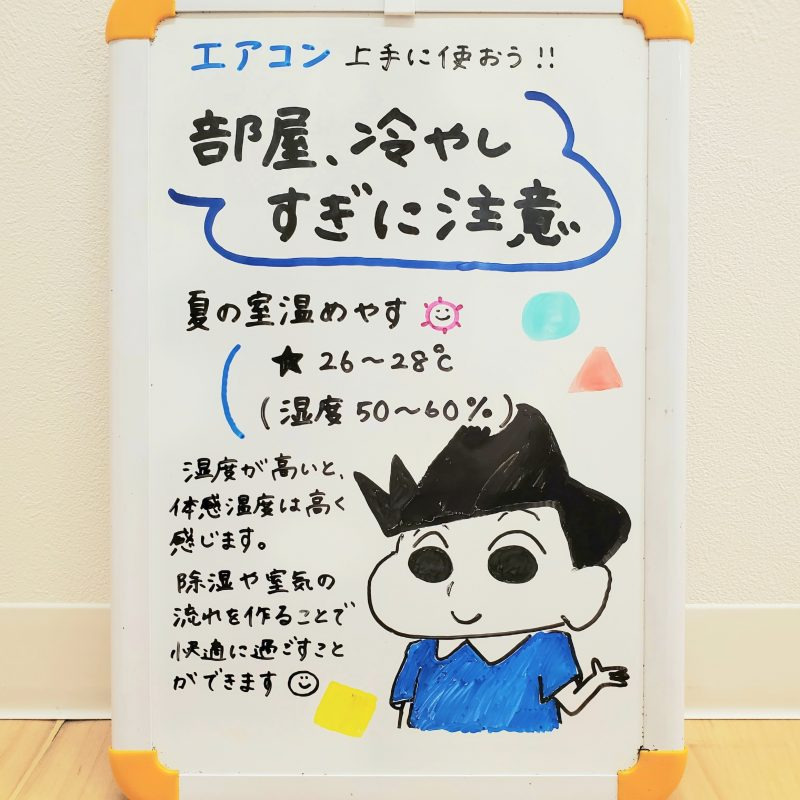 エアコン 上手に使おう!!
部屋、冷やし
すぎに注意
夏の室温めやす
★ 26〜28℃
(湿度 50〜60%)
湿度が高いと、
体感温度は高く
感じます。
除湿や室気の
流れを作ることで
快適に過ごすこと
ができます